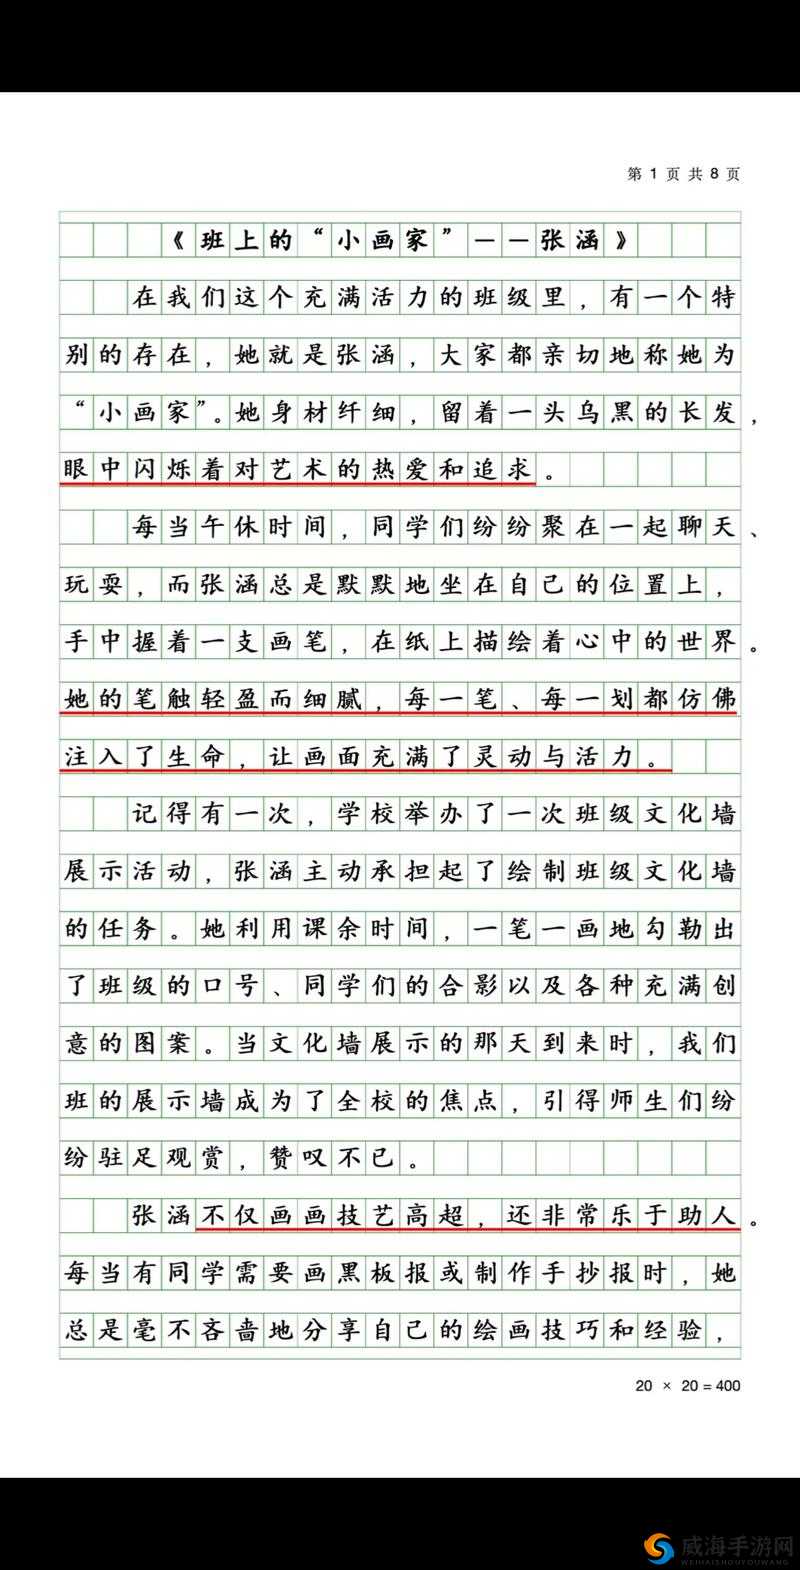 第 1 页 共 8 页
《班上的“小画家”——张涵》
在我们这个充满活力的班级里，有一个特
别的存在，她就是张涵，大家都亲切地称她为
“小画家”。她身材纤细，留着一头乌黑的长发，
眼中闪烁着对艺术的热爱和追求。
每当午休时间，同学们纷纷聚在一起聊天、
玩耍，而张涵总是默默地坐在自己的位置上，
手中握着一支画笔，在纸上描绘着心中的世界。
她的笔触轻盈而细腻，每一笔、每一划都仿佛
注入了生命，让画面充满了灵动与活力。
记得有一次，学校举办了一次班级文化墙
展示活动，张涵主动承担起了绘制班级文化墙
的任务。她利用课余时间，一笔一画地勾勒出
了班级的口号、同学们的合影以及各种充满创
意的图案。当文化墙展示的那天到来时，我们
班的展示墙成为了全校的焦点，引得师生们纷
纷驻足观赏，赞叹不已。
张涵不仅画画技艺高超，还非常乐于助人。
每当有同学需要画黑板报或制作手抄报时，她
总是毫不吝啬地分享自己的绘画技巧和经验，
20 × 20 = 400
威海手游网
WEIHAISHOUYOUWANG